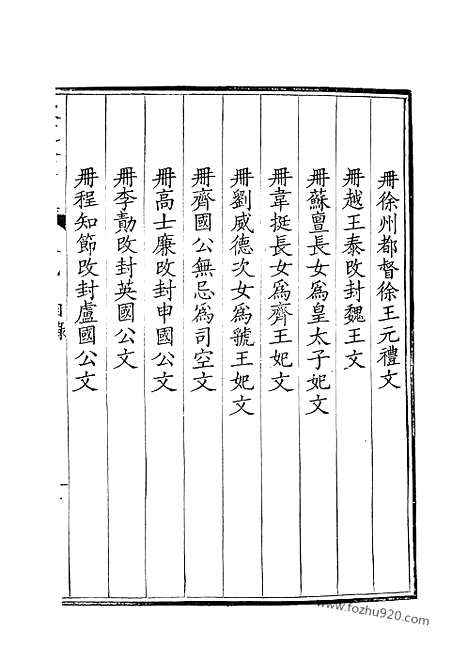 冊徐州都督徐王元禮文
冊越王泰改封魏王文
冊蘇亶長女爲皇太子妃文
冊韋挺長女爲齊王妃文
冊劉威德次女爲虢王妃文
冊齊國公無忌爲司空文
冊高士廉改封申國公文
冊李勣改封英國公文
冊程知節改封盧國公文
目錄
www.fozhu920.com